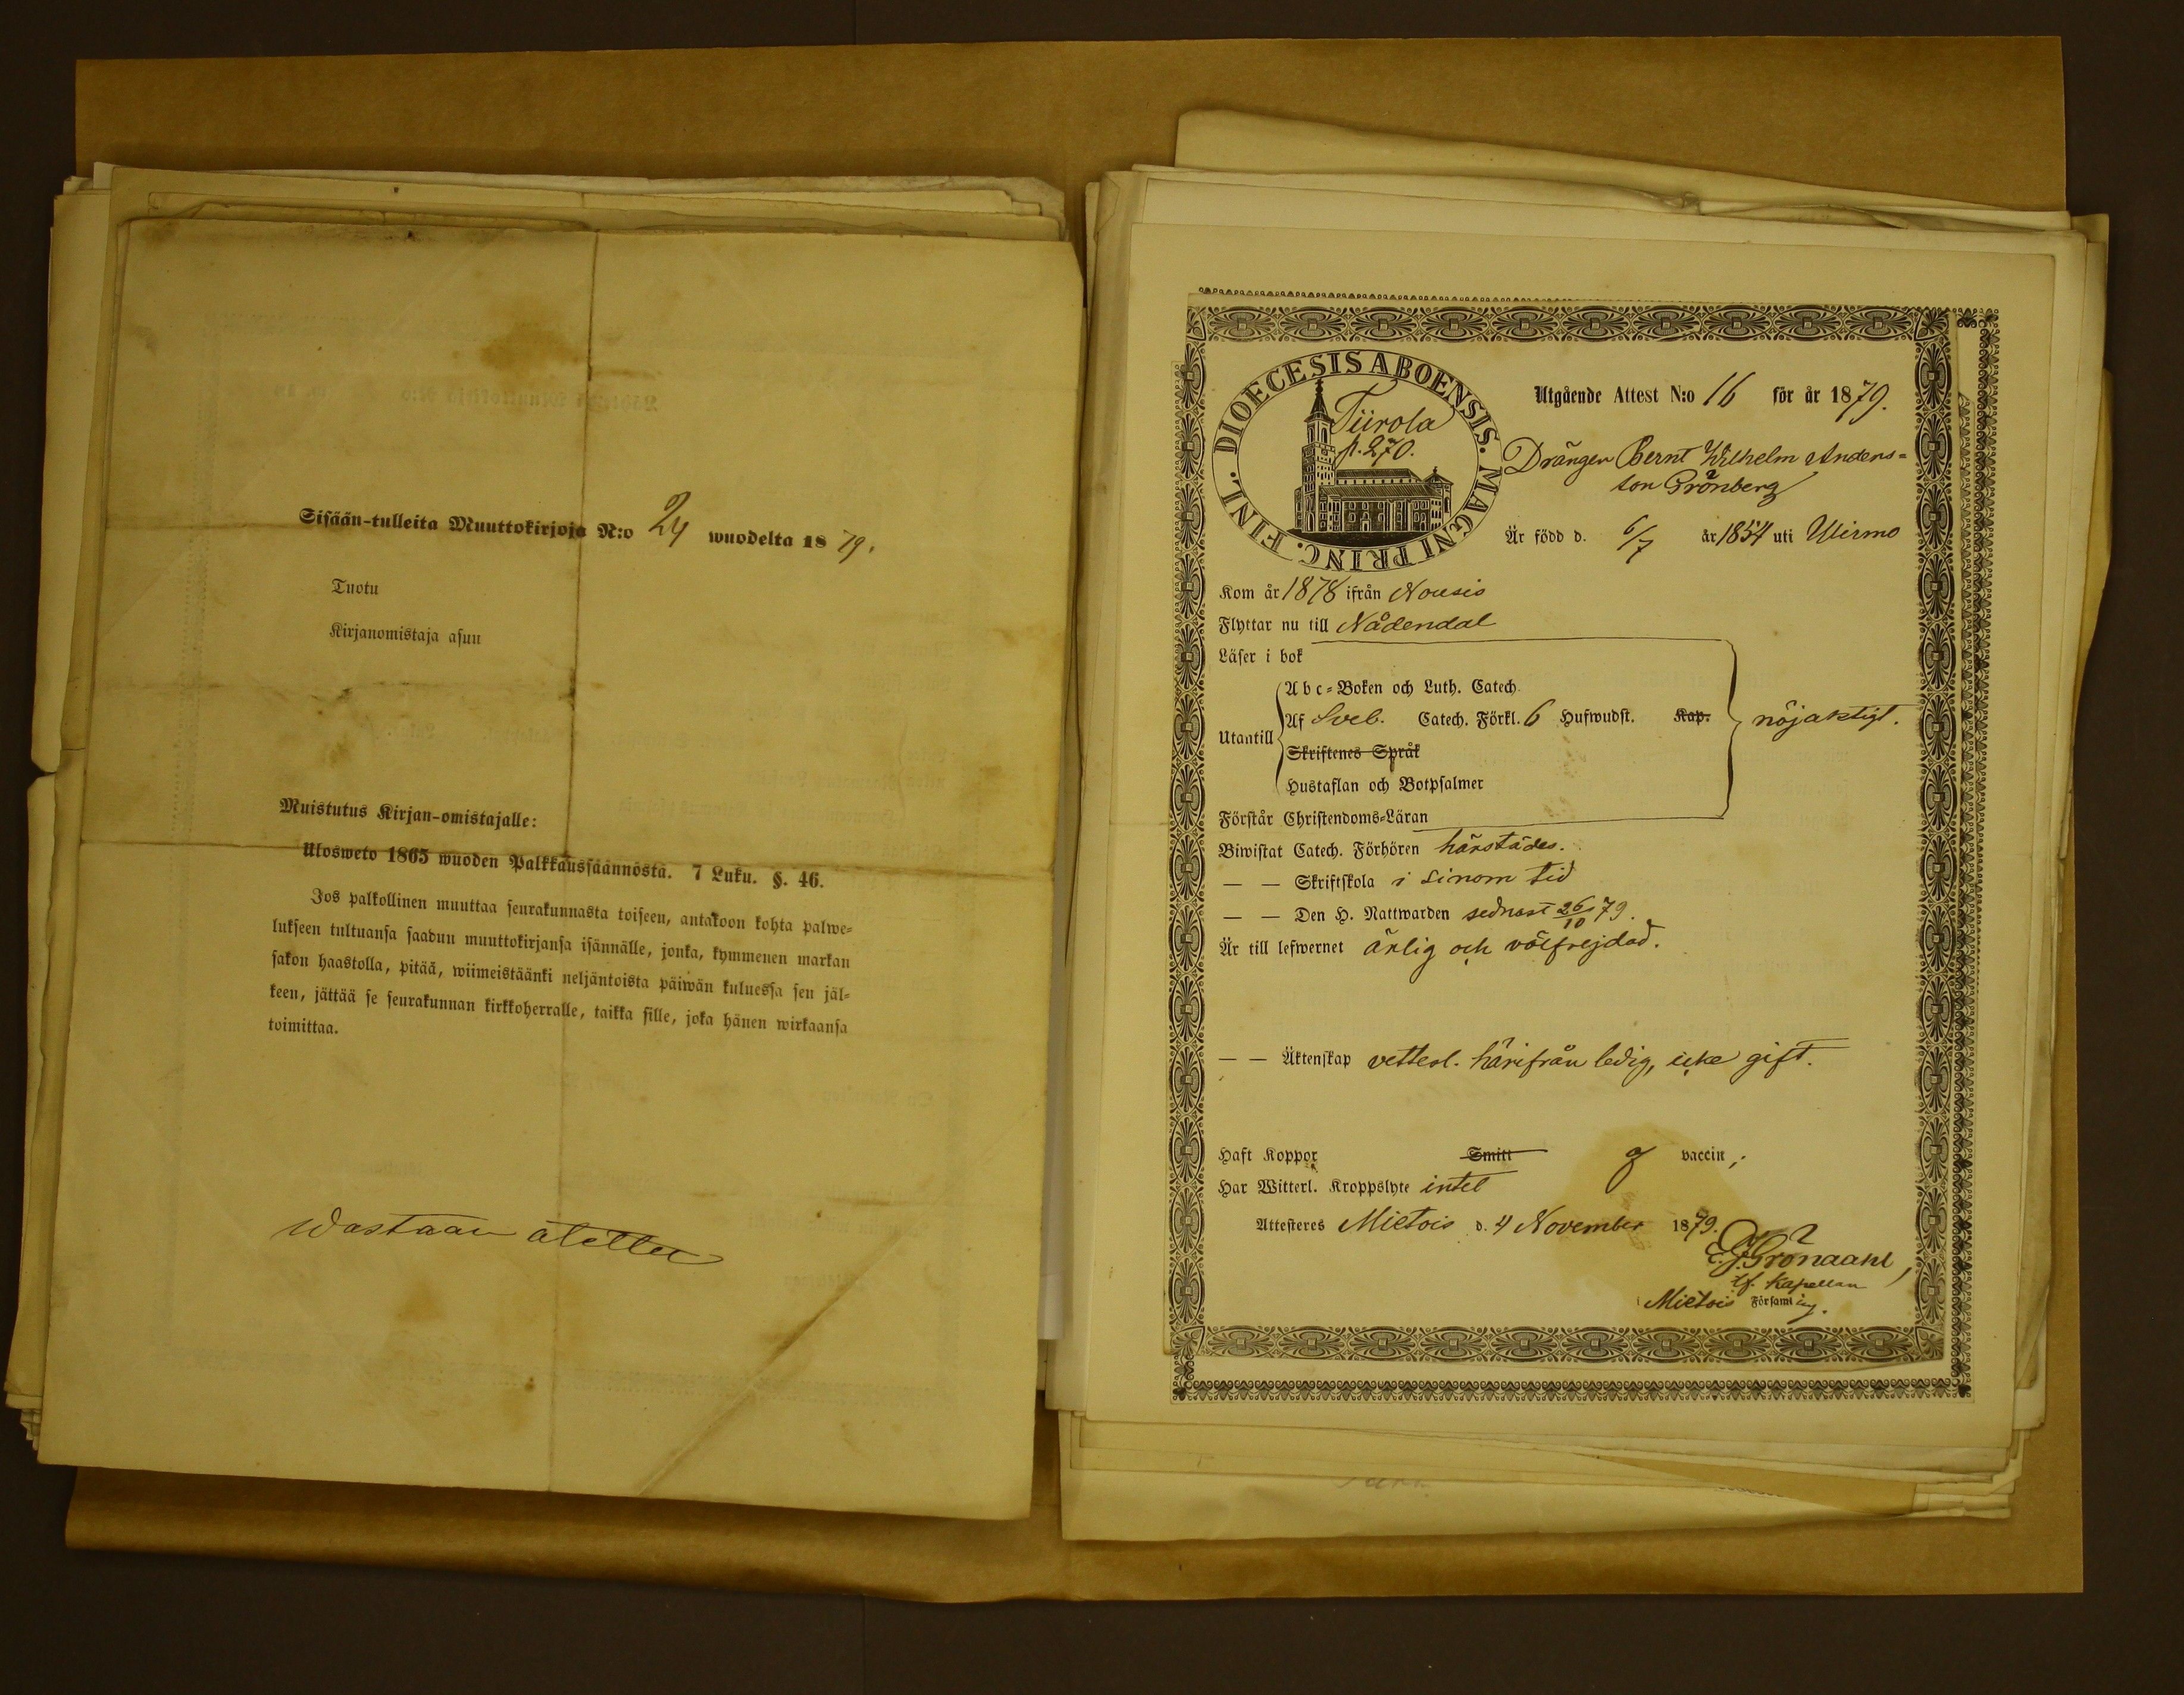 Sisään-tulleita Muuttokirjoja N:o 24 wuodelta 1879.
Tuotu
Kirjanomistaja asuu
Muistutus Kirjan-omistajalle:
Ulosweto 1865 wuoden Palkkaussäännöstä. 7 Luku. §. 46.
Jos palkollinen muuttaa seurakunnasta toiseen, antakoon kohta palwe=
lukseen tultuansa saadun muuttokirjansa isännälle, jonka, kymmenen markan
sakon haastolla, pitää, wiimeistäänki neljäntoista päiwän kuluessa sen jäl=
keen, jättää se seurakunnan kirkkoherralle, taikka sille, joka hänen wirkaansa
toimittaa.
Wastaan otettu
DIOECESIS ABOENSIS. MAGNI PRINC. FINL.
Tiirola
p. 270.
Utgående Attest N:o 16 för år 1879.
Drängen Bernt Wilhelm Anders=
son Grönberg
Är född d. 6/7 år 1854 uti Wirmo
Kom år 1878 ifrån Nousis
Flyttar nu till Nådendal
Läser i bok
Abc=Boken och Luth. Catech.
Utantill Af Sveb. Catech. Förkl. 6 Hufwudst. Kap. nöjaktigt.
Skriftenes Språk
Hustaflan och Botpsalmer
Förstår Christendoms=Läran
Biwistat Catech. Förhören härstädes.
— — Skriftskola i sinom tid
— — Den H. Nattwarden sednast 26/10 79.
Är till lefwernet ärlig och välfrejdad.
— — Äktenskap vetterl. härifrån ledig, icke gift.
Haft Koppor Smitt g vaccin;
Har Witterl. Kroppslyte intet
Attesteres Mietois d. 4 November 1879.
E. J. Grönaahl,
tf. Kapellan
i Mietois Församl ing.